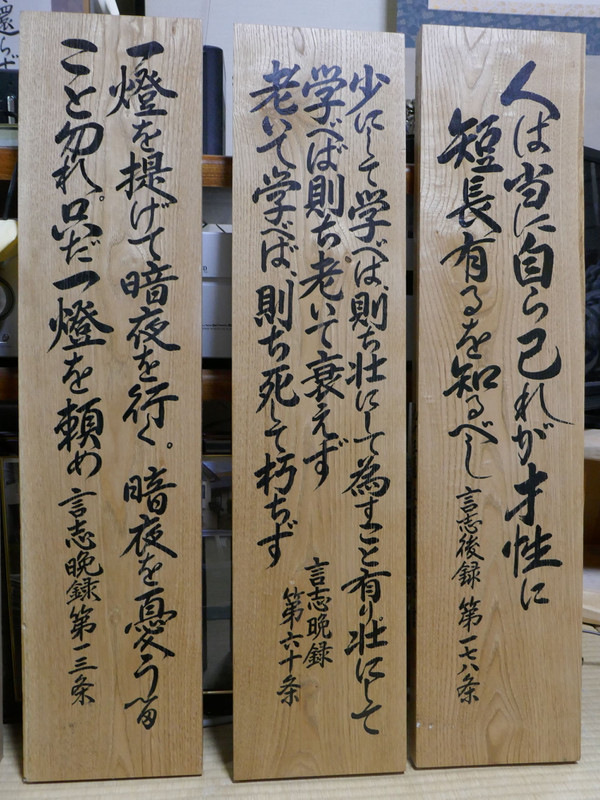 人は当に自ら己れが才性に
短長有るを知るべし 言志後録 第一七八条
少にして学べば、則ち壮にして為すこと有り壮にして
学べば則ち老いて衰えず
老いて学べば、則ち死して朽ちず
言志晩録
第六十条
一燈を提げて暗夜を行く。暗夜を憂うる
こと勿れ。只だ一燈を頼め 言志晩録第一三条
還らず